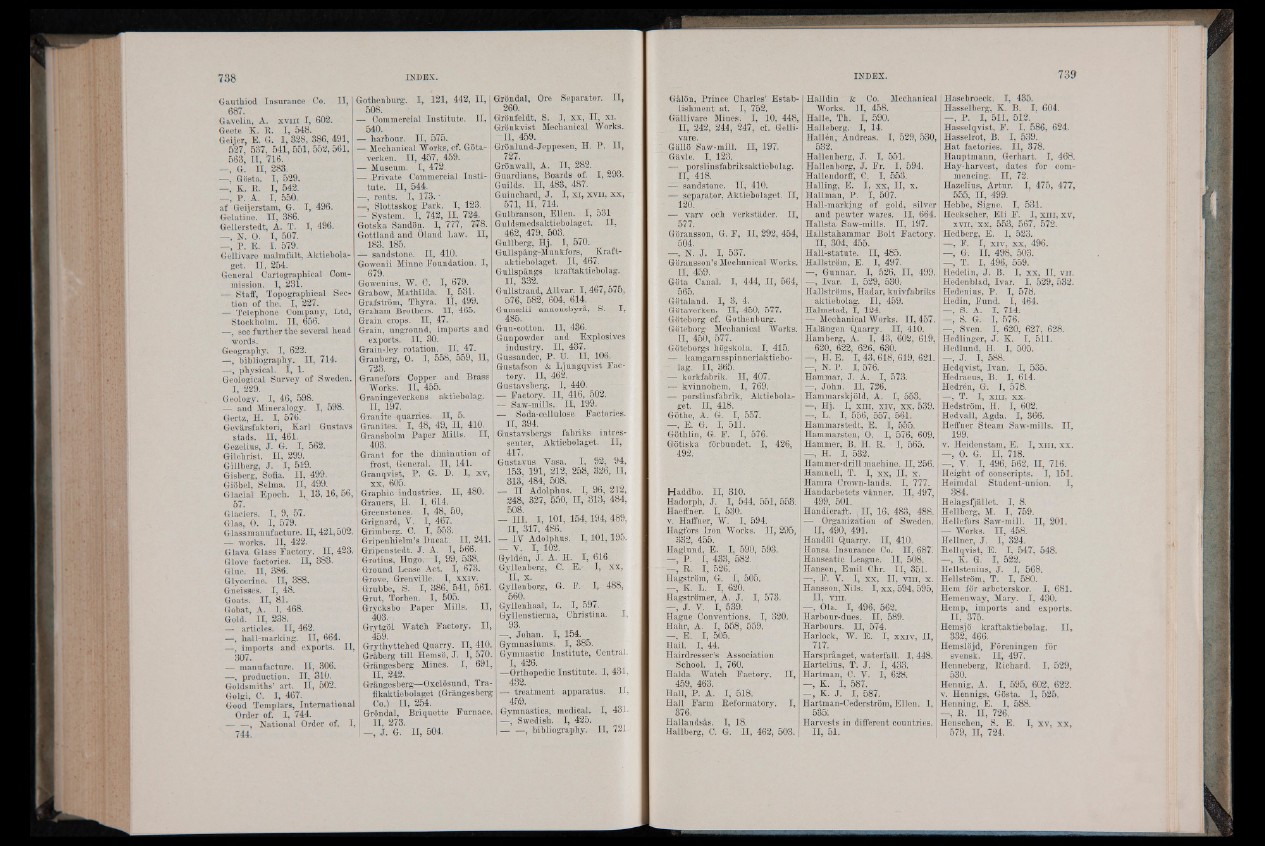 738
INDEX.
Gauthiod Insurance Co. II,
687.
Gavelin, A. XVIII I, 602.
Geete K. R. I, 548.
Geijer, E. G. I, 328, 386, 491,
527, 537, 541, 551, 552, 561,
563, II, 716.
—, G. II, 283.
—, Gösta. I, 529.
—, K. R. I, 542.
—, P. A. I, 550.
af Geijerstam, G. I, 496.
Gelatine. II, 386.
Gellerstedt, A. T. I, 496.
—, N. O. I, 507.
—, P. E. I. 579.
Gellivare malmfält, Aktiebola-
get. II, 254.
General Cartographical Com-
mission. I, 231.
— Staff, Topographical Sec-
tion of the. I, 227.
— Telephone Company, Ltd,
Stockholm. II, 656.
—, see further the several head
words.
Geography. I, 622.
—, bibliography. II, 714.
—, physical. I, 1.
Geological Survey of Sweden.
I, 229.
Geology. I, 46, 598.
— and Mineralogy. I, 598.
Gertz, H. I, 576.
Gevärsfaktori, Karl Gustavs
stads. II, 461.
Gezelius, J. G. I, 562.
Gilchrist. II, 299.
Gillberg, J. I, 519.
Gisberg, Sofia. II, 499.
Giöbel, Selma. II, 499.
Glacial Epoch. I, 13, 16, 56,
57.
Glaciers. I, 9, 57.
Glas, O. I, 579.
Glassmanufacture. II, 421, 502.
— works. II, 422.
Glava Glass Factory. II, 423.
Glove factories. II, 383.
Glue. II, 386.
Glycerine. II, 388.
Gneisses. I, 48.
Goats. II, 81.
Gobat, A. I, 468.
Gold. II, 238.
— articles. II, 462.
—, hall-marking. II, 664.
—, imports and exports. II,
307.
— manufacture. II, 306.
—, production. II, 310.
Goldsmiths' art. II, 502.
Golgi, C. I, 467.
Good Templars, International
Order of. I, 744.
— —, National Order of. I,
744.
Gothenburg. I, 121, 442, II,
508.
— Commercial Institute. II,
540.
— harbour. II, 575.
— Mechanical Works, cf. Göta-
verken. II, 457, 459.
— Museum. I, 472.
— Private Commercial Insti-
tute. II, 544.
—, rents. I, 173.
—, Slottsskog Park. I, 123.
— System. I, 742, II, 724.
Gotska Sandön. I, 777, 778.
Gottland and Öland Law. II,
183, 185.
— sandstone. II, 410.
Gowenii Minne Foundation. I,
679.
Gowenius, W. C. I, 679.
Grabow, Mathilda. I, 531.
Grafström, Thyra. II, 499.
Graham Brothers. II, 465.
Grain crops. II, 47.
Grain, unground, imports and
exports. II, 30.
Grain-ley rotation. II, 47.
Granberg, O. I, 558, 559, II,
723.
Granefors Copper and Brass
Works. II, 455.
Graningeverkens aktiebolag.
II, 197.
Granite quarries. II, 5.
Granites. I, 48, 49, II, 410.
Gransholm Paper Mills. II,
403.
Grant for the diminution of
frost, General. II, 141.
Granqvist, P. G. D. I, XV,
XX, 605.
Graphic industries. II, 480.
Grauers, H. I, 614.
Greenstones. I, 48, 50.
Grignard, V. I, 467.
Grimberg, C. I, 553.
Gripenhielm's Ducat. II, 241.
Gripenstedt. J. A. I, 566.
Grotius, Hugo. I, 99, 538.
Ground Lease Act. I, 673.
Grove, Grenville. I, XXIV.
Grubbe, S. I, 386, 541, 561.
Grut, Torben. I, 505.
Grycksbo Paper Mills. II,
403.
Grytgöl Watch Factory. II,
459.
Grythyttehed Quarry. II, 410.
Gråberg till Hemsö, J. I, 570.
Grängesberg Mines. I, 691,
II, 242.
Grängesberg—Oxelösund, Tra-
fikaktiebolaget (Grängesberg
Co.) II, 254.
Gröndal, Briquette Furnace.
II, 273.
—, J. G. II, 504.
Gröndal, Ore Separator. II,
260.
Grönfeldt, S. I, XX, II, XI.
Grönkvist Mechanical Works.
II, 459.
Grönlund-Jeppesen, H. P. II,
727.
Grönwall, A. II, 282.
Guardians, Boards of. I, 293.
Guilds. II, 483, 487.
Guinchard, J. I, XI, XVII, XX,
571, II, 714.
Gulbranson, Ellen. I, 531
Guldsmedsaktiebolaget. II,
462, 479, 503.
Gullberg, Hj. I, 570.
Gullspång-Munkfors, Kraft-
aktiebolaget. II, 467.
Gullspångs kraftaktiebolag.
II, 332.
Gullstrand, Allvar. I, 467, 575,
576, 582, 604, 614.
Gumælii annonsbyrå, S. I,
485.
Gun-cotton. II, 436.
Gunpowder and Explosives
industry. II, 437.
Gussander, P. U. II, 106.
Gustafson & Ljungqvist Fac-
tory. II, 462.
Gustavsberg. I, 440.
— Factory. II, 416, 502.
— Saw-mills. II, 199.
— Soda-cellulose Factories.
II, 394.
Gustavsbergs fabriks intres-
senter, Aktiebolaget. II,
417.
Gustavus Vasa. I, 92, 94,
153, 191, 212, 258, 326, II,
313, 484, 508.
— II Adolphus. I, 96, 212,
248, 327, 550, II, 313, 484,
508.
— III. I, 101, 154, 194, 489,
II, 317, 486.
— IV Adolphus. I, 101, 195.
— V. I, 102.
Gyldén, J. A. H. I, 616.
Gyllenberg, C. E. I, XX,
II, X.
Gyllenborg, G. F. I, 488,
560.
Gyllenhaal, L. I, 597.
Gyllenstierna, Christina. I,
93.
—, Johan. I, 154.
Gymnasiums. I, 385.
Gymnastic Institute, Central.
I, 426.
—Orthopedic Institute. I, 431,
432.
— treatment apparatus. II,
459.
Gymnastics, medical. I, 431.
—, Swedish. I, 425.
— —, bibliography. II, 721
INDEX.
739
Gålön, Prince Charles' Estab-
lishment at. I, 752.
Gällivare Mines. I, 10, 448,
II, 242, 244, 247, cf. Gelli-
vare.
Gällö Saw-mill. II, 197.
Gävle. I, 123.
— porslinsfabriksaktiebolag.
II, 418.
— sandstone. II, 410.
— separator, Aktiebolaget. II,
120.
— varv och verkstäder. II,
577.
Göransson, G. F, II, 292, 454,
504.
—, N. J. I, 537.
Göransson's Mechanical Works.
II, 459.
Göta Canal. I, 444, II, 564,
565.
Götaland. I, 3, 4.
Götaverken. II, 450, 577.
Göteborg cf. Gothenburg.
Göteborg Mechanical Works.
II, 450, 577.
Göteborgs högskola. I, 415.
— kamgarnsspinneriaktiebo-
lag. II, 365.
— korkfabrik. II, 407.
— kvinnohem. I, 769.
— porslinsfabrik, Aktiebola-
get. II, 418.
Göthe, A. G. I, 557.
—, E. G. I, 511.
Göthlin, G. F. I, 576.
Götiska förbundet. I, 426,
492.
Haddbo. II, 310.
Hadorph, J. I, 544, 551, 553.
Haeffner. I, 530.
v. Haffner, W. I, 594.
Hagfors Iron Works. II, 295,
332, 455.
Haglund, E. I, 590, 596.
—, P. I, 433, 582.
—, R. I, 526.
Hagström, G. I, 505.
—, K. L. I, 620.
Hagströmer, A. J. I, 573.
—, J. V. I, 539.
Hague Conventions. I, 320.
Hahr, A. I, 558, 559.
—, E. I, 505.
Hail. I, 44.
Hairdresser's Association
School. I, 760.
Halda Watch Factory. II,
459, 463.
Hall, P. A. I, 518.
Hall Farm Reformatory. I,
376.
Hallandsås. I, 18.
Hallberg, C. G. II, 462, 503.
Halldin & Co. Mechanical
Works. II, 458.
Halle, Th. I, 590.
Halleberg. I, 14.
Hallén, Andreas. I, 529, 530,
532.
Hallenberg, J. I, 551.
Hallenborg, J. Fr. I, 594.
Hallendorff, C. I, 553.
Halling, E. I, XX, II, X.
Hallman, P. I, 507.
Hall-marking of gold, silver
and pewter wares. II, 664.
Hallsta Saw-mills. II, 197.
Hallstahammar Bolt Factory.
II, 304, 455.
Hall-statute. II, 485.
Hallström, E. I, 497.
—, Gunnar. I, 526, II, 499.
—, Ivar. I, 529, 530.
Hallströms, Hadar, knivfabriks
aktiebolag. II, 459.
Halmstad. I, 124.
— Mechanical Works. II, 457.
Halängen Quarry. II, 410.
Hamberg, A. I, 43, 602, 619,
620, 622, 626, 630.
—, H. E. I, 43, 618, 619, 621.
—, N. P. I, 576.
Hammar, J. A. I, 573.
—, John. II, 726.
Hammarskjöld, A. I, 553.
—, Hj. I, XIII, XIV, XX, 539.
—, L. I, 556, 557, 561.
Hammarstedt, E. I, 555.
Hammarsten, O. I, 576, 609.
Hammer, B. H. R. I, 565.
—, H. I, 532.
Hammer-drill machine. II, 256.
Hamnell, T. I, XX, II, X.
Hamra Crown-lands. I, 777.
Handarbetets vänner. II, 497,
499, 501.
Handicraft. II, 16, 483, 488.
— Organization of Sweden.
II, 490, 491.
Handöl Quarry. II, 410.
Hansa Insurance Co. II, 687.
Hanseatic League. II, 508.
Hansen, Emil Chr. II, 351.
—, F. V. I, XX, II, VIII, X.
Hansson, Nils. I, XX, 594, 595,
II, VIII.
—, Ola. I, 496, 562.
Harbour-dues. II, 589.
Harbours. II, 574.
Harlock, W. E. I, XXIV, II,
717.
Harsprånget, waterfall. I, 448.
Hartelius, T. J. I, 433.
Hartman, C. V. I, 628.
—, K. I, 587.
—, K. J. I, 587.
Hartman-Cederström, Ellen. I,
535.
Harvests in different countries.
II, 51.
Haschroeck. I, 435.
Hasselberg, K. B. I, 604.
—, P. I, 511, 512.
Hasselqvist, F. I, 586, 624.
Hasselrot, B. I, 539.
Hat factories. II, 378.
Hauptmann, Gerhart. I, 468.
Hay-harvest, dates for com-
mencing. II, 72.
Hazelius, Artur. I, 475, 477,
555, II, 499.
Hebbe, Signe. I, 531.
Heckscher, Eli F. I, XIII, XV,
XVII, XX, 553, 567, 572.
Hedberg, E. I, 523.
—, F. I, XIV, XX, 496.
—, G. II, 498, 503.
—, T. I, 496, 559.
Hedelin, J. B. I, XX, II, VII.
Hedenblad, Ivar. I, 529, 532.
Hedenius, P. I, 578.
Hedin, Fund. I, 464.
—, S. A. I, 714.
—, S. G. I, 576.
—, Sven. I, 620, 627, 628.
Hedlinger, J. K. I, 511.
Hedlund, H. I, 505.
—, J. I, 588.
Hedqvist, Ivan. I, 535.
Hedræus, B. I, 614.
Hedrén, G. I, 578.
—, T. I, XIII, XX.
Hedström, H. I, 602.
Hedvall, Agda. I, 366.
Heffner Steam Saw-mills. II,
199.
v. Heidenstam, E. I, XIII, XX.
—, O. G. II, 718.
—, V. I, 496, 562, II, 716.
Height of conscripts. I, 151.
Heimdal Student-union. I,
384.
Helagsfjället. I, 8.
Hellberg, M. I, 759.
Hellefors Saw-mill. II, 201.
— Works. II, 458.
Hellner, J. I, 324.
Hellqvist, E. I, 547, 548.
—, K. G. I, 522.
Hellstenius, J. I, 568.
Hellström, T. I, 580.
Hem för arbeterskor. I, 681.
Hemenway, Mary. I, 430.
Hemp, imports and exports.
II, 375.
Hemsjö kraftaktiebolag. II,
332, 466.
Hemslöjd, Föreningen för
svensk. II, 497.
Henneberg, Richard. I, 529,
530.
Hennig, A. I, 595, 602, 622.
v. Hennigs, Gösta. I, 525.
Henning, E. I, 588.
—, R. II, 726.
Henschen, S. E. I, XV, XX,
579, II, 724.